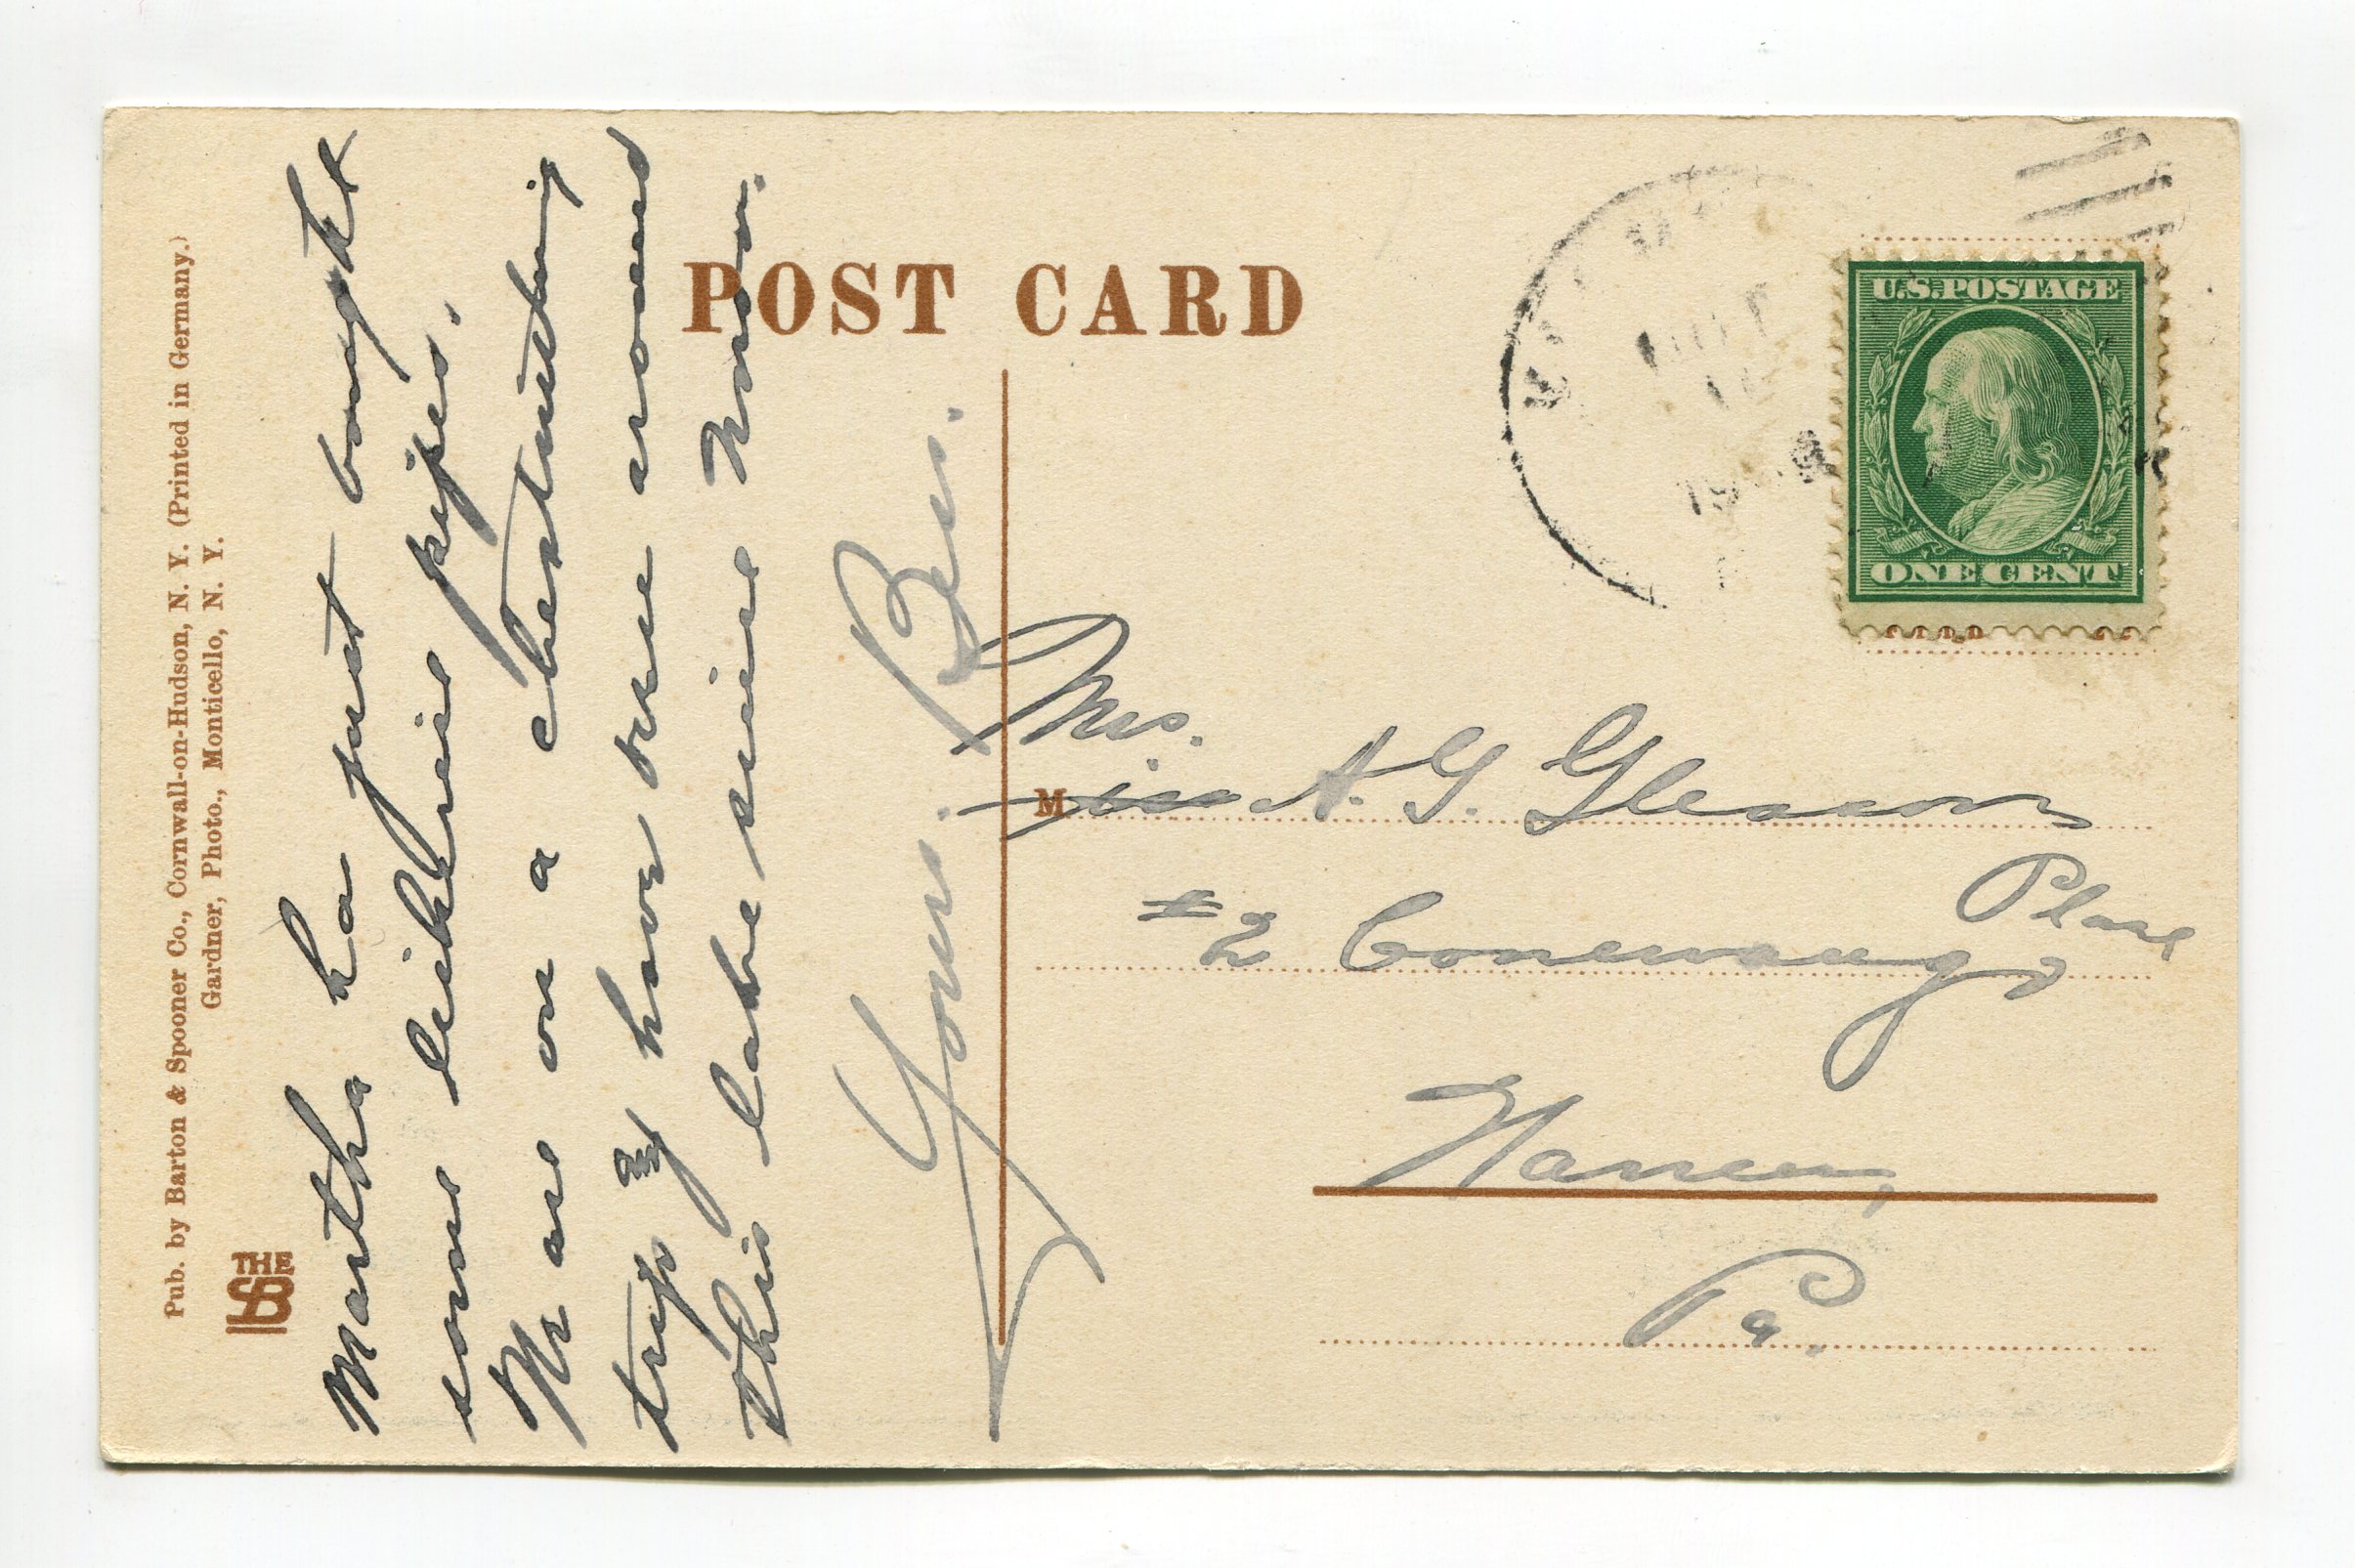 Pub. by Barton & Spooner Co., Cornwall-on-Hudson, N. Y. (Printed in Germany.)
Gardner, Photo., Monticello, N. Y.
THE
SB
POST CARD
Martha ha just bought
some pipes.
We are on a chestnutting
trip & have been around
this lake since noon.
Yours. Ben.
U.S. POSTAGE
ONE CENT
OCT
M
Mrs.
iss A. G. Gleason
#2 Conewango Place
Warren,
Pa.